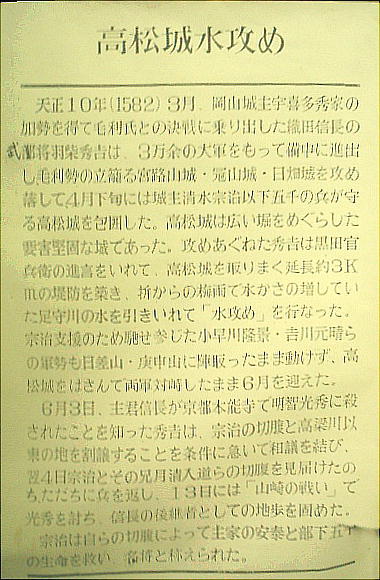 高松城水攻め
天正10年(1582)3月、岡山城主宇喜多秀家の
加勢を得て毛利氏との決戦に乗り出した織田信長の
武将羽柴秀吉は、3万余の大軍をもって備中に進出
し毛利勢の立籠る宮路山城・冠山城・日畑城を攻め
落して4月下旬には城主清水宗治以下五千の兵が守
る高松城を包囲した。高松城は広い堀をめぐらした
要害堅固な城であった。攻めあぐねた秀吉は黒田官
兵衛の進言をいれて、高松城を取りまく延長約3K
mの堤防を築き、折からの梅雨で水かさの増してい
た足守川の水を引きいれて「水攻め」を行なった。
宗治支援のため馳せ参じた小早川隆景・吉川元晴ら
の軍勢も日差山・庚申山に陣取ったまま動けず、高
松城をはさんで両軍対峙したまま6月を迎えた。
6月3日、主君信長が京都本能寺で明智光秀に殺
されたことを知った秀吉は、宗治の切腹と高梁川以
東の地を割譲することを条件に急いで和議を結び、
翌4日宗治とその兄月清入道らの切腹を見届けたの
ちただちに兵を返し、13日には「山崎の戦い」で
光秀を討ち、信長の後継者としての地歩を固めた。
宗治は自らの切腹によって主家の安泰と部下五千
の生命を救い、名将と称えられた。